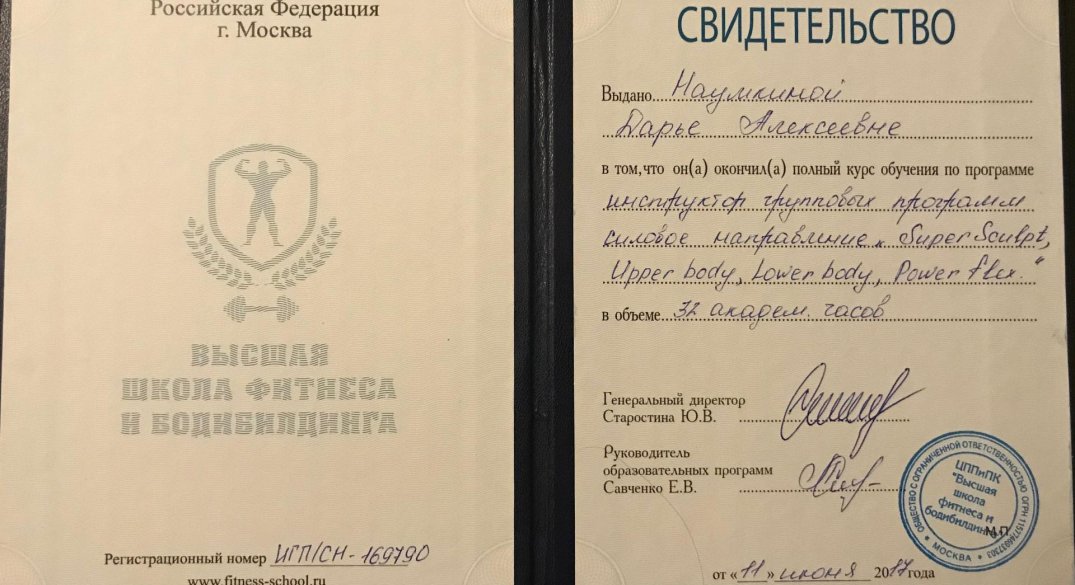 Российская Федерация
г. Москва
ВЫСШАЯ
ШКОЛА ФИТНЕСА
И БОДИБИЛДИНГА
Регистрационный номер ИГП/СН-169790
www.fitness-school.ru
СВИДЕТЕЛЬСТВО
Выдано Наумкиной
Дарье Алексеевне
в том,что он(а) окончил(а) полный курс обучения по программе
инструктор групповых программ
силовое направление „Super Sculpt,
Upper body, Lower body, Power flex."
в объеме 32 академ. часов
Генеральный директор
Старостина Ю.В.
Руководитель
образовательных программ
Савченко Е.В.
ОБЩЕСТВО С ОГРАНИЧЕННОЙ ОТВЕТСТВЕННОСТЬЮ ОГРН
ЦППиПК
"Высшая
школа
фитнеса и
бодибилдинга"
МОСКВА
М.П.
от «11» июня 2017года